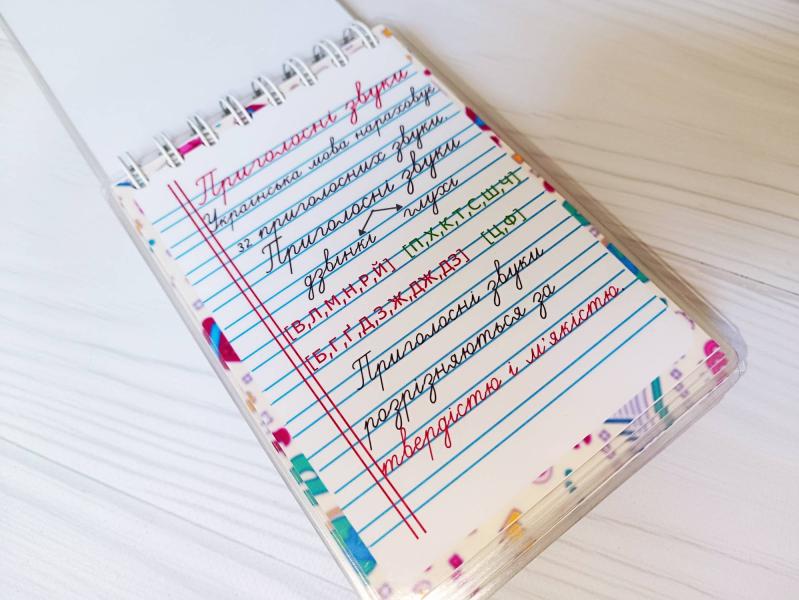 Приголосні звуки
Українська мова нараховує
32 приголосних звуки.
Приголосні звуки
дзвінкі глухі
[В,Л,М,Н,Р,Й] [П,Х,К,Т,С,Ш,Ч]
[Б,Г,Ґ,Д,З,Ж,ДЖ,ДЗ] [Ц,Ф]
Приголосні звуки
розрізняються за
твердістю і м'якістю.